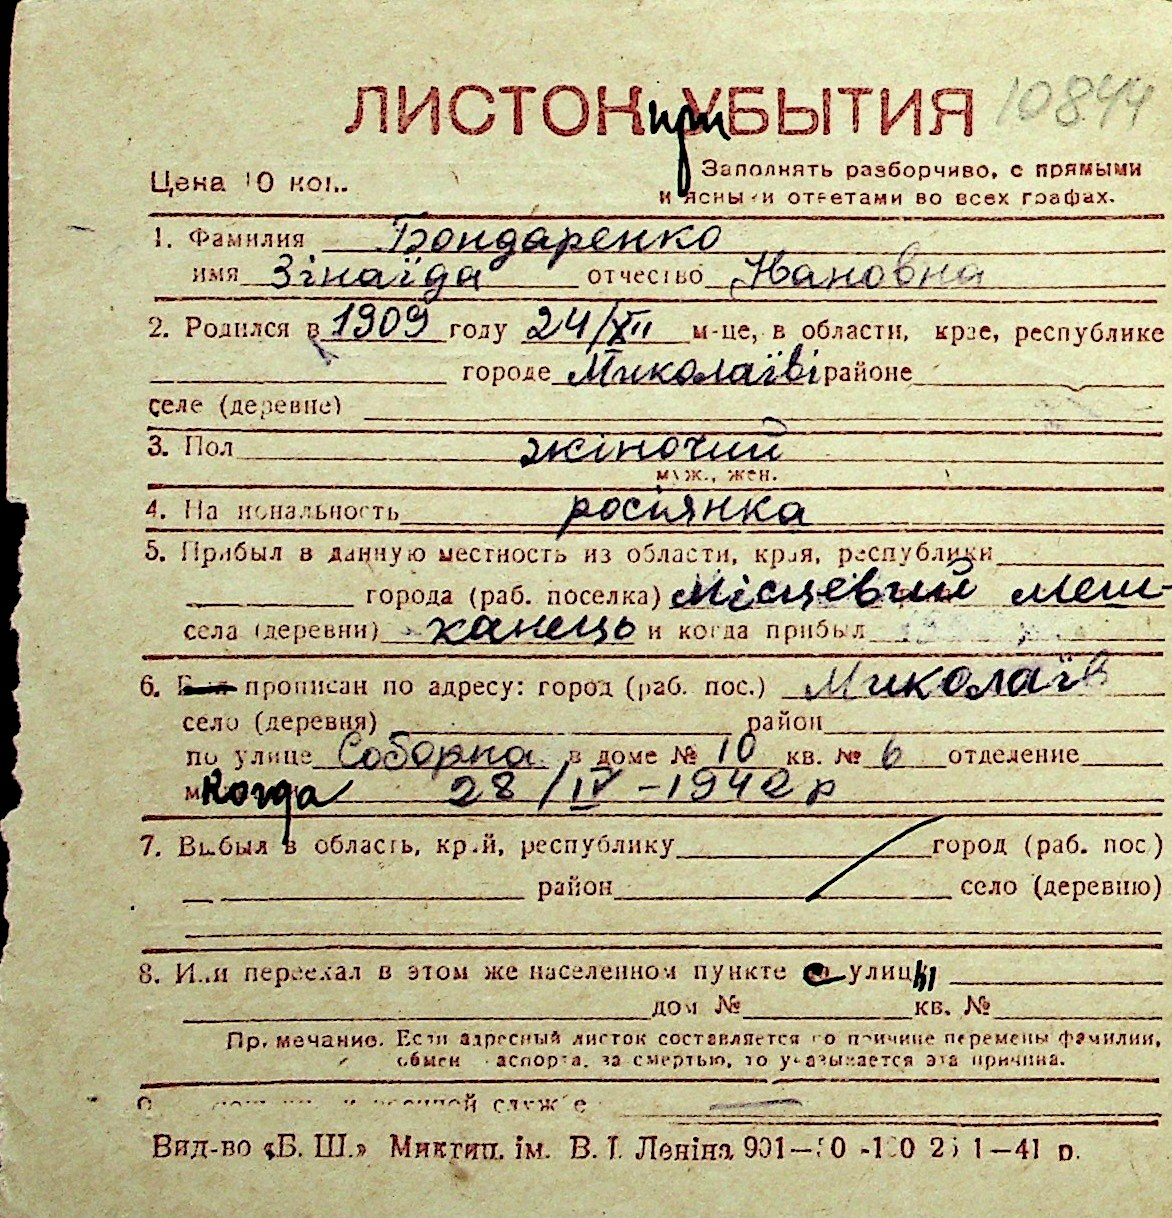 ЛИСТОК при УБЫТИЯ 10844
Цена 10 коп.
Заполнять разборчиво, с прямыми
и ясными ответами во всех графах.
1. Фамилия Бондаренко
имя Зінаїда отчество Ивановна
2. Родился в 1909 году 24/XII м-це, в области, крае, республике
городе Миколаїві районе
селе (деревне)
3. Пол жіночий
муж., жен.
4. Национальность росіянка
5. Прибыл в данную местность из области, края, республики
города (раб. поселка) Місцевий меш-
села (деревни) канець и когда прибыл
6. Был прописан по адресу: город (раб. пос.) Миколаїв
село (деревня) район
по улице Соборна в доме № 10 кв. № 6 отделение
Когда 28/IV-1942 р
7. Выбыл в область, край, республику город (раб. пос.)
район село (деревню)
8. Или переехал в этом же населенном пункте с улицы
дом № кв. №
Примечание. Если адресный листок составляется по причине перемены фамилии,
обмен паспорта, за смертью, то указывается эта причина.
военной службе
Вид-во «Б. Ш.» Миктип. ім. В. І. Леніна 901— 1—41 р.